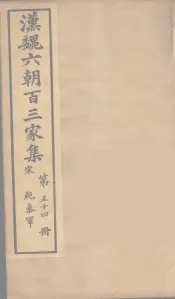 漢魏六朝百三家集
宋
鮑參軍
第五十四冊